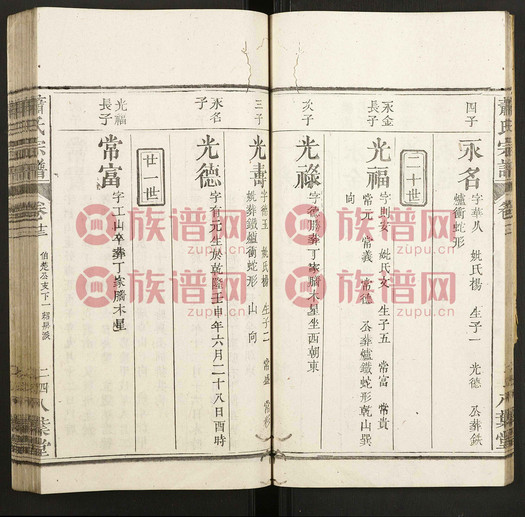 蕭氏宗譜
卷十二
八葉堂
四子
永名
字華八 妣氏楊 生子一 光德 公葬鉄
爐衝蛇形
二十世
永金
長子
光福
妣氏文 生子五 常富 常貴
常元 常義 常德 公葬爐鐵蛇形乾山巽
向
次子
光祿
葬丁家勝木星坐西朝東
三子
光壽
妣氏楊 生子二
妣葬鐵爐衝蛇形 山 向
永名
子
光德
字有元生於乾隆壬申年六月二十八日酉時
廿一世
光福
長子
常富
字工山卒葬丁家勝木星
蕭氏宗譜
二四
八葉堂
族谱网
zupu.cn